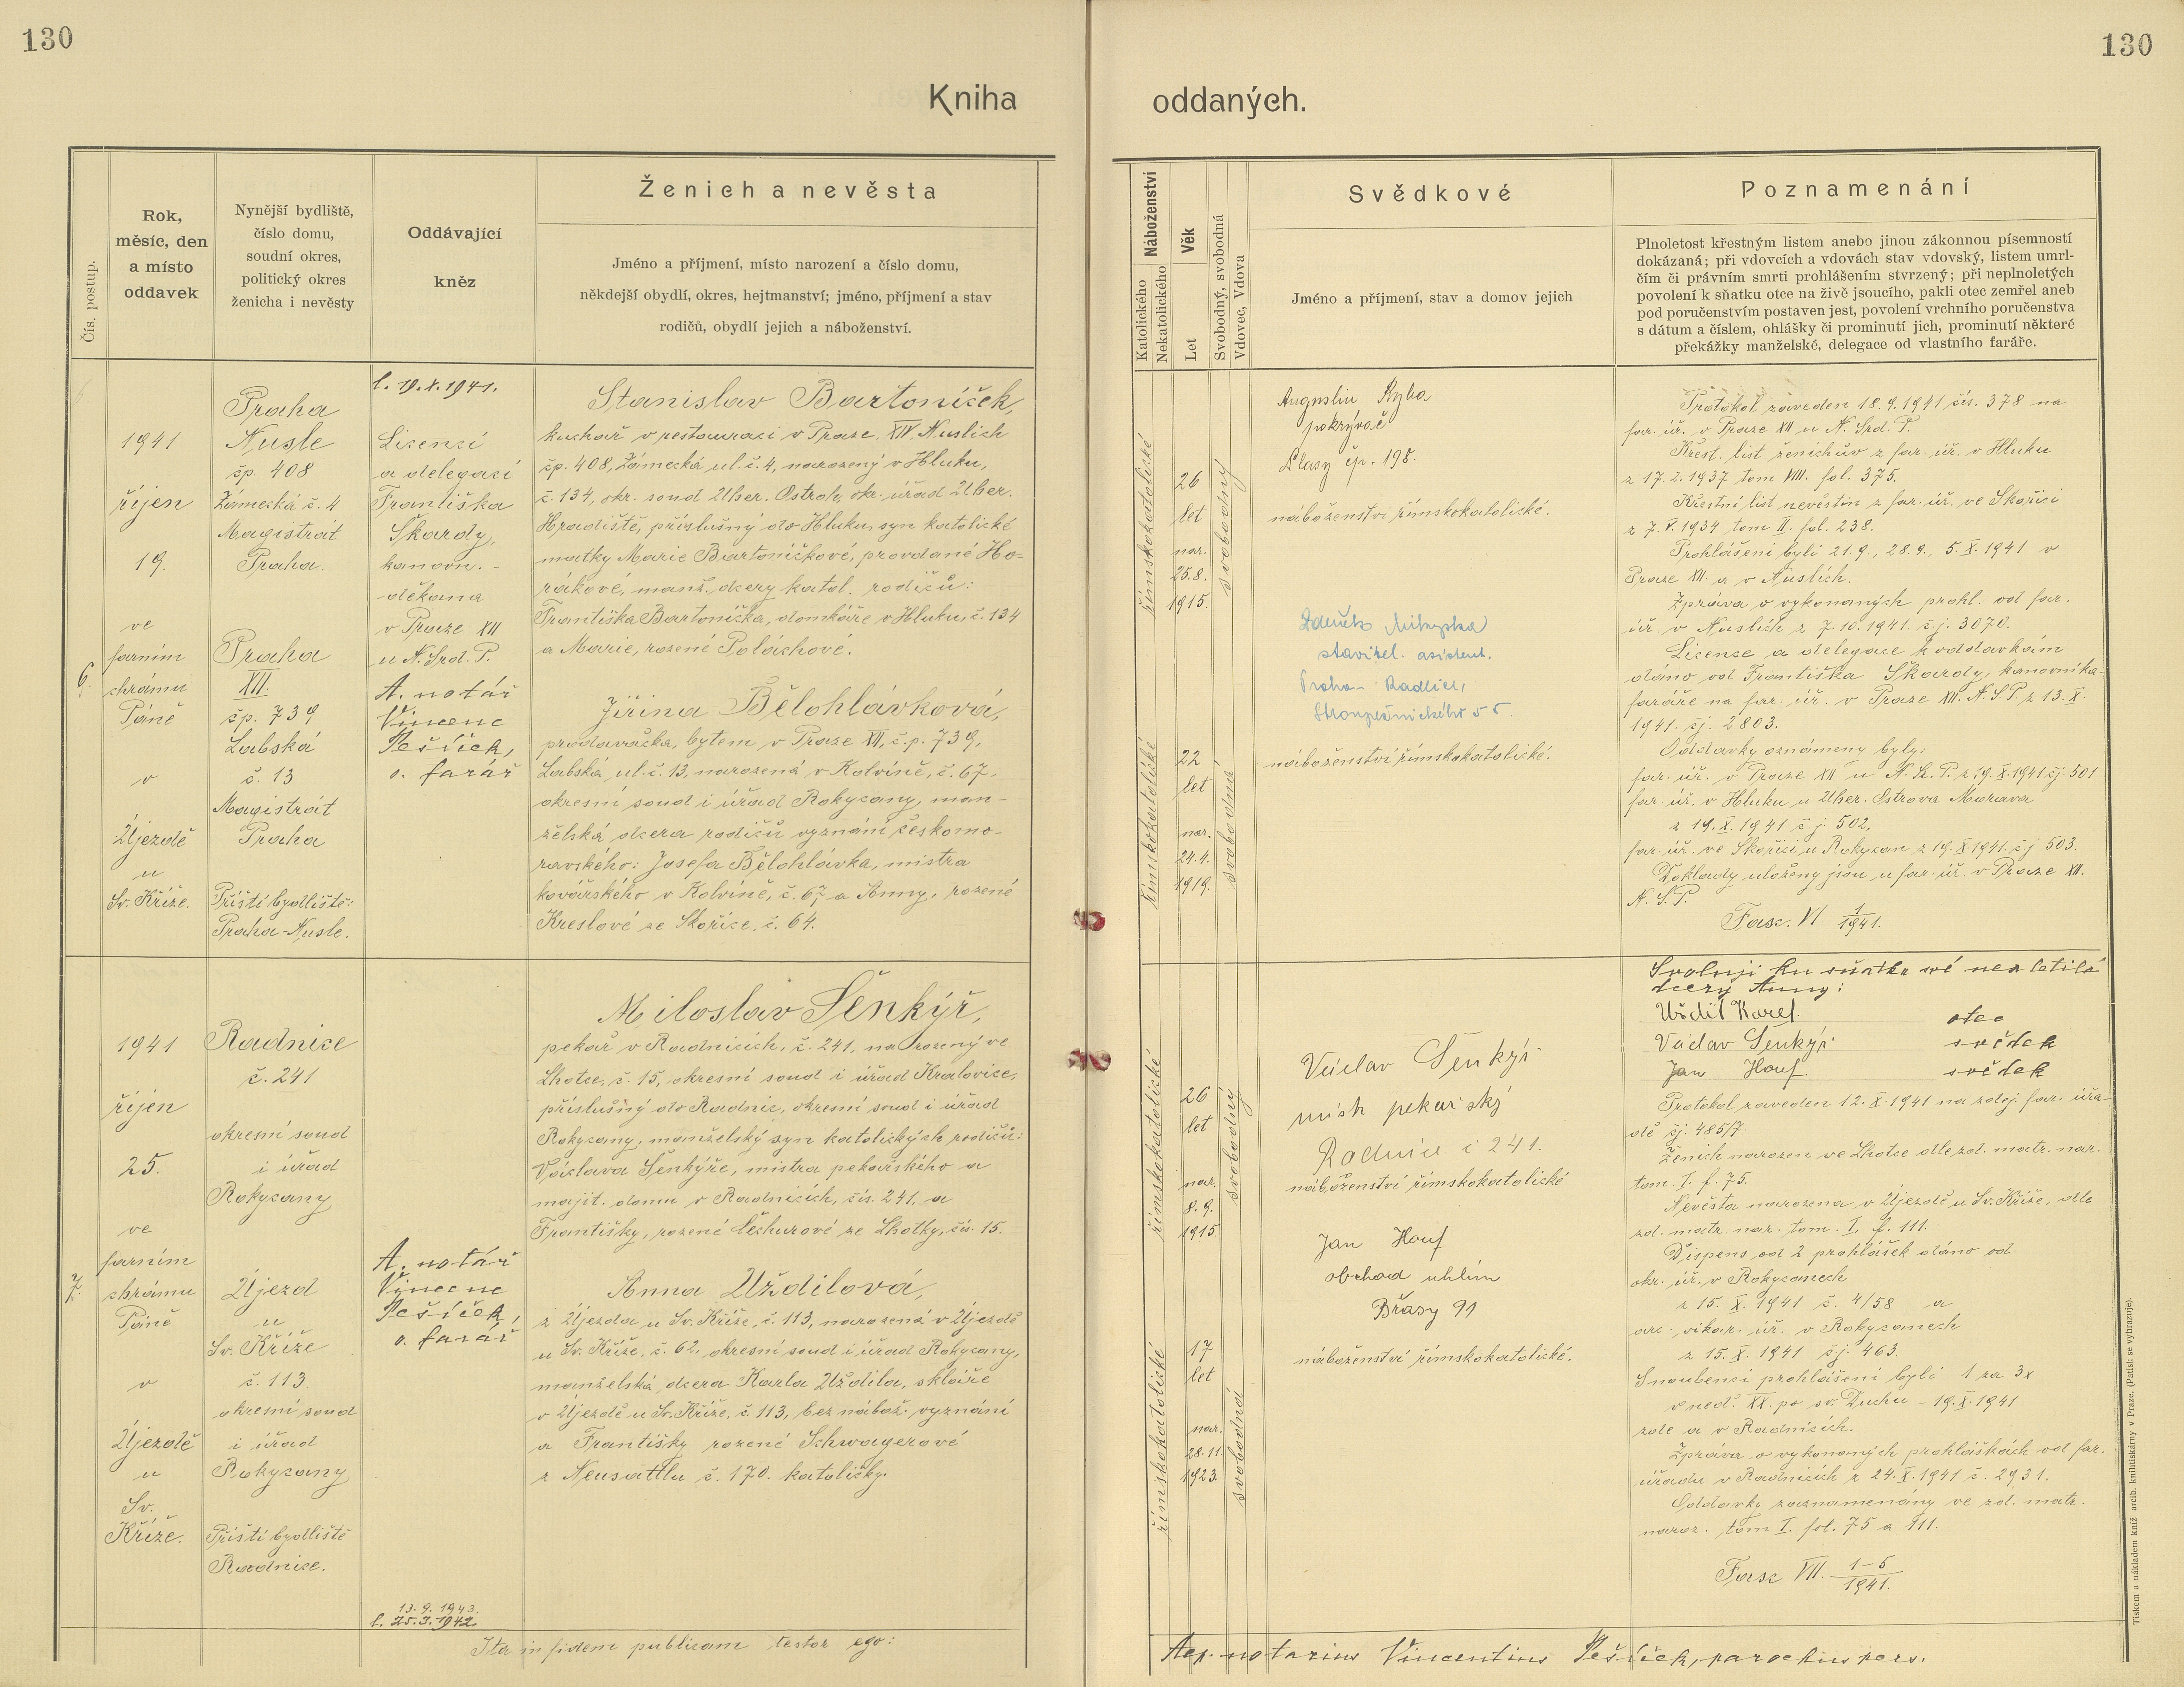 130
130
Kniha
oddaných.
Čís. postup.
Rok,
měsíc, den
a místo
oddavek
Nynější bydliště,
číslo domu,
soudní okres,
politický okres
ženicha i nevěsty
Oddávající
kněz
Ženich a nevěsta
Jméno a příjmení, místo narození a číslo domu,
někdejší obydlí, okres, hejtmanství; jméno, příjmení a stav
rodičů, obydlí jejich a náboženství.
Náboženství
Katolického
Nekatolického
Věk
Let
Svobodný, svobodná
Vdovec, Vdova
Svědkové
Jméno a příjmení, stav a domov jejich
Poznamenání
Plnoletost křestným listem anebo jinou zákonnou písemností
dokázaná; při vdovcích a vdovách stav vdovský, listem umrl-
čím či právním smrti prohlášením stvrzený; při neplnoletých
povolení k sňatku otce na živě jsoucího, pakli otec zemřel aneb
pod poručenstvím postaven jest, povolení vrchního poručenstva
s dátum a číslem, ohlášky či prominutí jich, prominutí některé
překážky manželské, delegace od vlastního faráře.
6.
1941
říjen
19.
ve
farním
chrámu
Páně
v
Újezdě
u
Sv. Kříže.
Praha
Nusle
čp. 408
Zámecká č. 4
Magistrát
Praha.
Praha
XII.
čp. 739
Labská
č. 13
Magistrát
Praha
Příští bydliště:
Praha-Nusle.
l. 19.X.1941.
Licencí
a delegací
Františka
Škardy,
kanovn.-
děkana
v Praze XII
u N. Srd. P.
A. notář
Vincenc
Pešíček,
o. farář
Stanislav Bartoníček,
kuchař v restauraci v Praze XIV. Nuslích
čp. 408, Zámecká ul. č. 4, narozený v Hluku,
č. 134, okr. soud Uher. Ostroh, okr. úřad Uher.
Hradiště, příslušný do Hluku, syn katolické
matky Marie Bartoníčkové, provdané Ho-
rákové, manž. dcery katol. rodičů:
Františka Bartoníčka, domkáře v Hluku, č. 134
a Marie, rozené Poláchové.
Jiřina Bělohlávková,
prodavačka, bytem v Praze XII, č.p. 739,
Labská ul. č. 13, narozená v Kolvíně, č. 67,
okresní soud i úřad Rokycany, man-
želská dcera rodičů vyznání českomo-
ravského: Josefa Bělohlávka, mistra
kovářského v Kolvíně, č. 67 a Anny, rozené
Kreslové ze Skořice. č. 64.
římskokatolické
26
let
nar.
25.8.
1915.
svobodný
římskokatolické
22
let
nar.
24.4.
1919.
svobodná
Augustin Ryba
pokrývač
čp. 198.
náboženství římskokatolické.
stavitel. asistent.
Praha - Radlice,
Stroupežnického 55.
náboženství římskokatolické.
Protokol zaveden 18.9.1941 čís. 378 na
far. úř. v Praze XII u N. Srd. P.
Křest. list ženichův z far. úř. v Hluku
z 17.2.1937 tom VIII. fol. 375.
Křestní list nevěstin z far. úř. ve Skořici
z 7.V.1934 tom II. fol. 238.
Prohlášeni byli 21.9., 28.9., 5.X.1941 v
Praze XII. a v Nuslích.
Zpráva o vykonaných prohl. od far.
úř. v Nuslích z 7.10.1941. č.j. 3070.
Licence a delegace k oddavkám
dáno od Františka Škardy, kanovníka-
faráře na far. úř. v Praze XII. N.S.P. z 13.X.
1941. čj. 2803.
Oddavky oznámeny byly:
far. úř. v Praze XII u N. S. P. z 19.X.1941 čj. 501
far. úř. v Hluku u Uher. Ostrova Morava
z 19.X.1941 č.j. 502,
far. úř. ve Skořici u Rokycan z 19.X.1941. č.j. 503.
Doklady uloženy jsou u far. úř. v Praze XII.
N. S. P.
Fasc. VI. 1/1941.
7.
1941
říjen
25.
ve
farním
chrámu
Páně
v
Újezdě
u
Sv.
Kříže.
Radnice
č. 241
okresní soud
i úřad
Rokycany
Újezd
u
Sv. Kříže
č. 113.
okresní soud
i úřad
Rokycany
Příští bydliště
Radnice.
A. notář
Vincenc
Pešíček,
o. farář
13.9.1943.
l. 25.3.1942
Miloslav Šenkýř,
pekař v Radnicích, č. 241, narozený ve
Lhotce, č. 15, okresní soud i úřad Kralovice,
příslušný do Radnic, okresní soud i úřad
Rokycany, manželský syn katolických rodičů:
Václava Šenkýře, mistra pekařského a
majit. domu v Radnicích, čís. 241, a
Františky, rozené Čechurové ze Lhotky, čís. 15.
Anna Uždilová,
z Újezda u Sv. Kříže, č. 113, narozená v Újezdě
u Sv. Kříže, č. 62, okresní soud i úřad Rokycany,
manželská dcera Karla Uždila, skláře
v Újezdě u Sv. Kříže, č. 113, bez nábož. vyznání
a Františky rozené Schwagerové
z Neusattlu č. 170. katoličky.
římskokatolické
26
let
nar.
8.9.
1915
svobodný
římskokatolické
17
let
nar.
28.11.
1923.
svobodná
Václav Šenkýř
mistr pekařský
Radnice č 241.
náboženství římskokatolické
Jan Houf
obchod uhlím
Břasy 91
náboženství římskokatolické.
Svoluji ku sňatku své nezletilé
dcery Anny:
Uždil Karel. otec
Václav Šenkýř svědek
Jan Houf. svědek
Protokol zaveden 12.X.1941 na zdej. far. úřa-
dě čj. 485/7.
Ženich narozen ve Lhotce dle zd. matr. nar.
tom. I. f. 75.
Nevěsta narozena v Újezdě u Sv. Kříže, dle
zd. matr. nar. tom. I. f. 111.
Dispens od 2 prohlášek dáno od
okr. úř. v Rokycanech
z 15. X. 1941 č. 4/58 a
arc. vikar. úř. v Rokycanech
z 15. X. 1941 čj. 463.
Snoubenci prohlášeni byli 1 za 3x
v neď. XX. po sv. Duchu - 19.X.1941
zde a v Radnicích.
Zpráva o vykonaných prohláškách od far.
úřadu v Radnicích z 24.X.1941 č. 2931.
Oddavky zaznamenány ve zd. matr.
naroz. tom I. fol. 75 a 111.
Fasc VII. 1-5/1941.
Ita in fidem publicam testor ego:
Aep. notarius Vincentius Pešíček, parochus pers.
Tiskem a nákladem kníž. arcib. knihtiskárny v Praze. (Patisk se vyhrazuje).